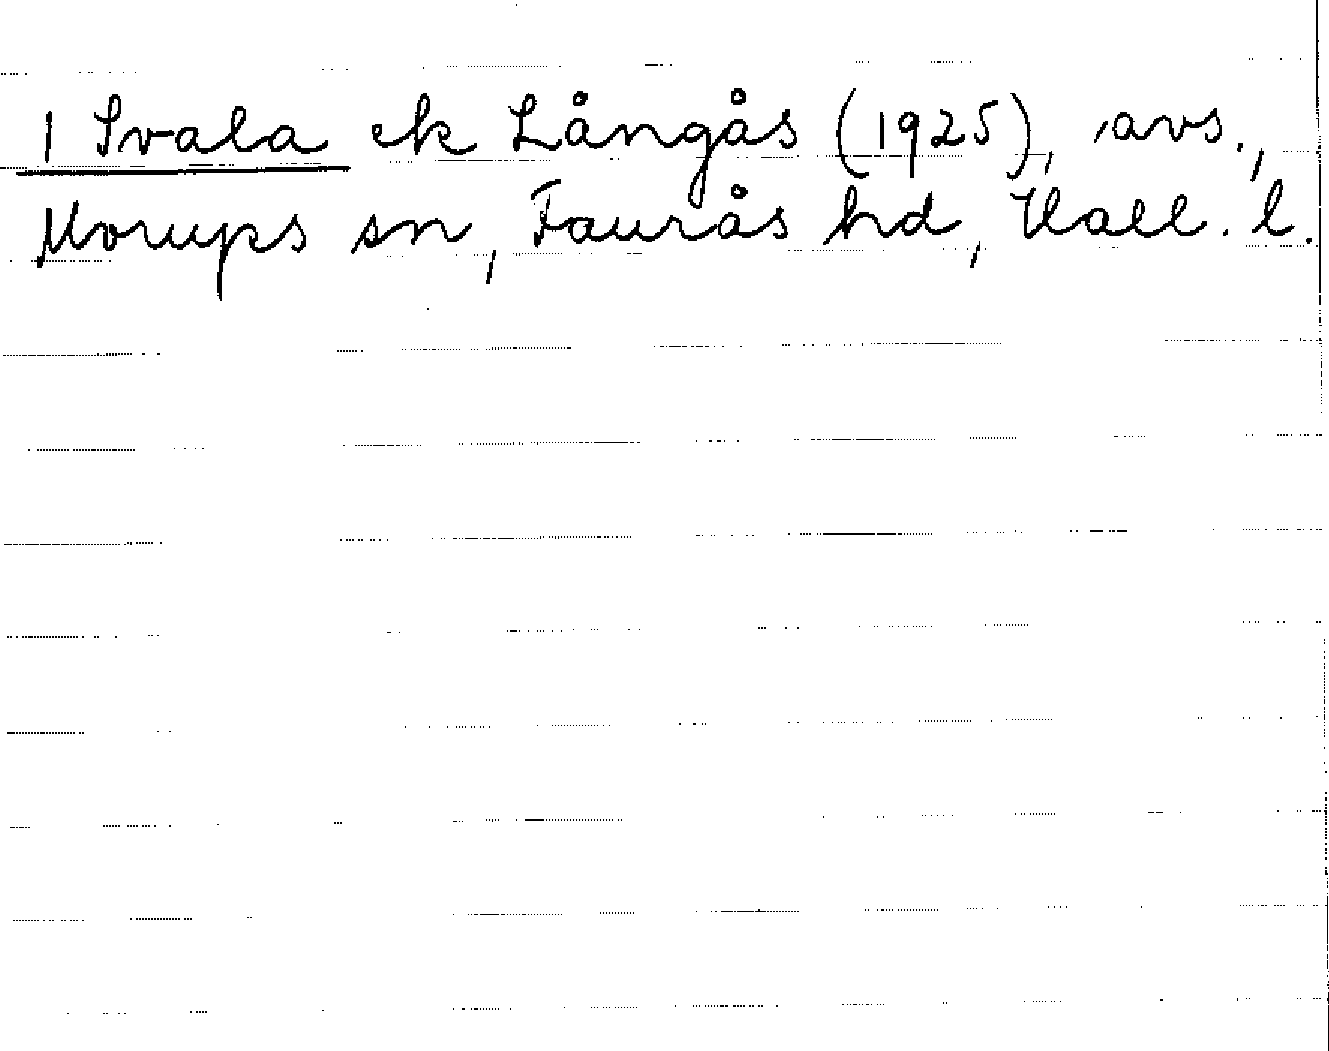 1 Svala ek Långås (1925), avs.,
Morups sn, Faurås hd, Hall. l.